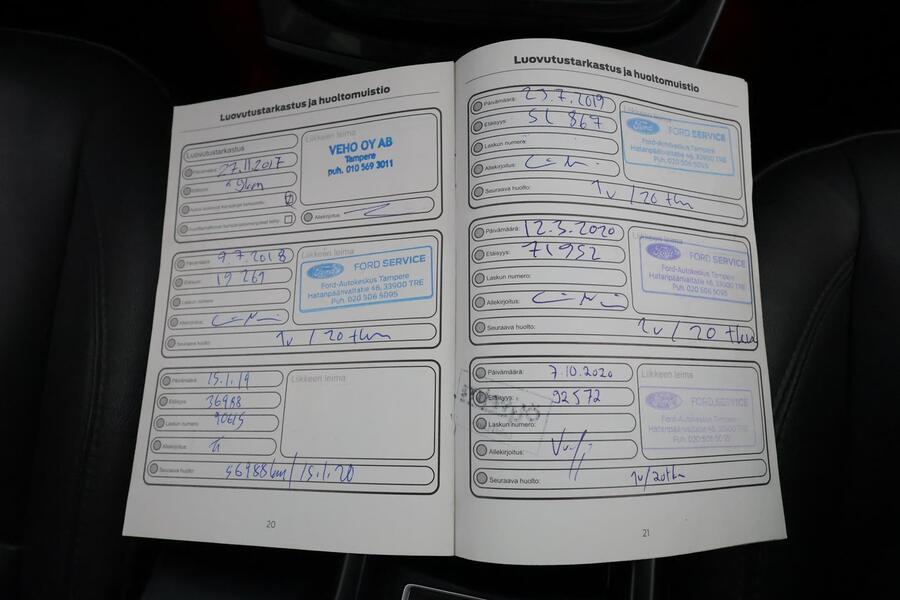 Luovutustarkastus ja huoltomuistio
Luovutustarkastus
Päivämäärä: 27.11.2017
Etäisyys: 9km
Liikkeen leima
VEHO OY AB
Tampere
puh. 010 569 3011
Allekirjoitus:
Päivämäärä: 9.7.2018
Etäisyys: 19 261
Laskun numero:
Allekirjoitus:
Seuraava huolto: 1v / 20 tkm
Liikkeen leima
Ford
FORD SERVICE
Ford-Autokeskus Tampere
Hatanpäänvaltatie 46, 33900 TRE
Puh. 020 506 5095
Päivämäärä: 15.1.19
Etäisyys: 36988
Laskun numero: 90615
Allekirjoitus:
Seuraava huolto: 56988km / 15.1.20
Liikkeen leima
20
Luovutustarkastus ja huoltomuistio
Päivämäärä: 23.7.2019
Etäisyys: 51 867
Laskun numero:
Allekirjoitus:
Seuraava huolto: 1v / 20 tkm
Liikkeen leima
Ford
FORD SERVICE
Ford-Autokeskus Tampere
Hatanpäänvaltatie 46, 33900 TRE
Puh. 020 506 5095
Päivämäärä: 12.3.2020
Etäisyys: 71952
Laskun numero:
Allekirjoitus:
Seuraava huolto: 1v / 20 tkm
Liikkeen leima
Ford
FORD SERVICE
Ford-Autokeskus Tampere
Hatanpäänvaltatie 46, 33900 TRE
Puh. 020 506 5095
Päivämäärä: 7.10.2020
Etäisyys: 92572
Laskun numero:
Allekirjoitus:
Seuraava huolto: 1v/20tkm
Liikkeen leima
FORD SERVICE
Ford-Autokeskus Tampere
Hatanpäänvaltatie 46, 33900 TRE
21